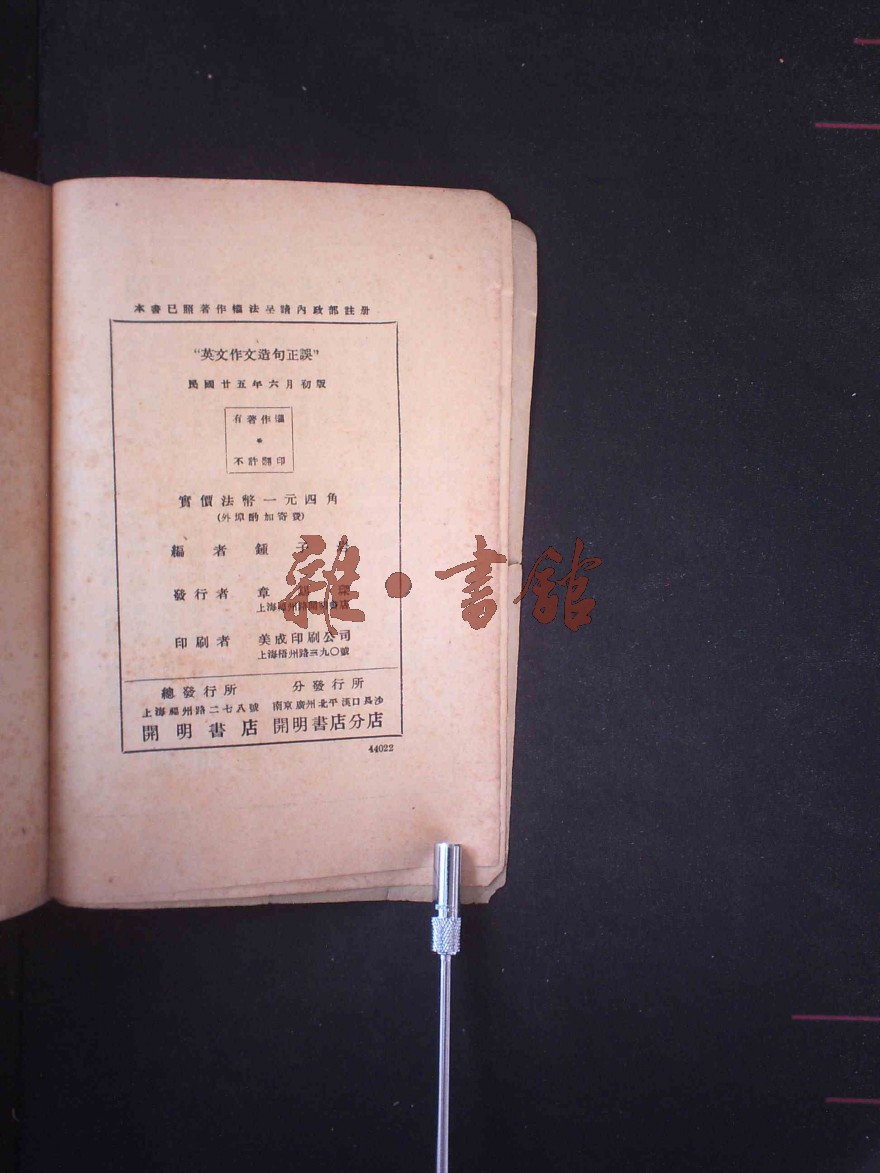 本書已照著作權法呈請內政部註册
"英文作文造句正誤"
民國廿五年六月初版
有著作權
不許翻印
實價法幣一元四角
(外埠酌加寄費)
編者 鍾子
發行者 章
上海福州路開明書店
印刷者 美成印刷公司
上海梧州路三九〇號
總發行所 分發行所
上海福州路二七八號 南京廣州北平漢口長沙
開明書店 開明書店分店
44022
雜·書館